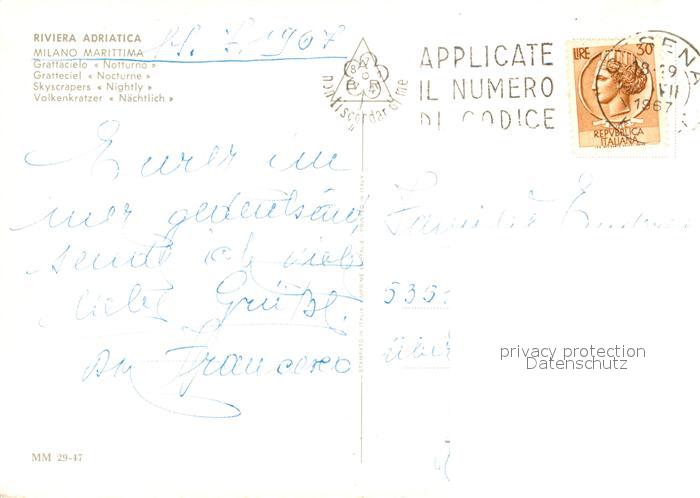 RIVIERA ADRIATICA
MILANO MARITTIMA
Grattacielo « Notturno »
Gratteciel « Nocturne »
Skyscrapers « Nightly »
Volkenkratzer « Nächtlich »
7. 1967
non ti scordar di me
APPLICATE
IL NUMERO
DI CODICE
LIRE 30
REPVBBLICA
ITALIANA
SENA
18-19
VII
1967
Eurer im
mer gedenkend
sende ich viele
liebe Grüße.
Francesco
Familie
535
über
privacy protection
Datenschutz
MM 29-47